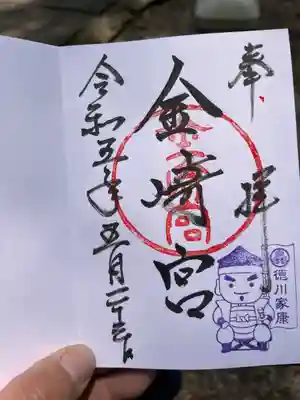 奉拝
金崎宮
令和五年五月二十三日
徳川家康